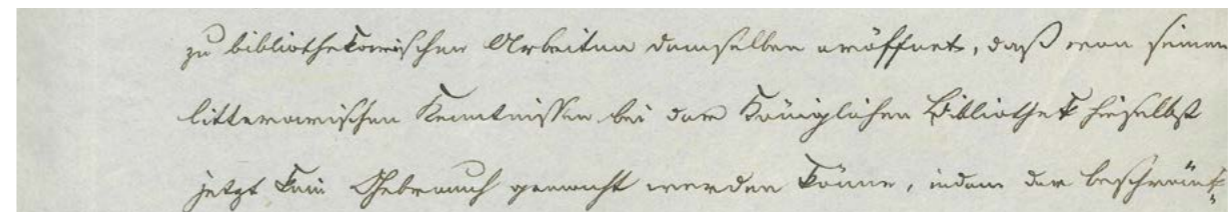 zu bibliothekarischen Arbeiten demselben eröffnet, daß von seinen
litterarischen Kenntnissen bei der Königlichen Bibliothek hieselbst
jetzt kein Gebrauch gemacht werden könne, indem der beschränk=